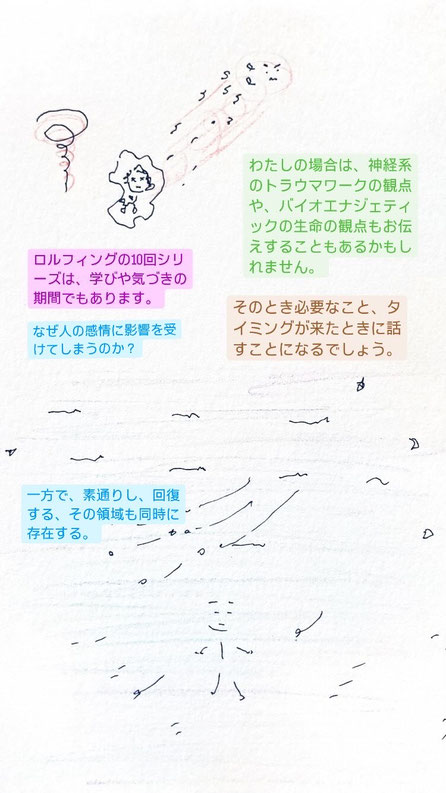 わたしの場合は、神経系
のトラウマワークの観点
や、バイオエナジェティ
ックの生命の観点もお伝
えすることもあるかもし
れません。
ロルフィングの10回シリ
ーズは、学びや気づきの
期間でもあります。
そのとき必要なこと、タ
イミングが来たときに話
すことになるでしょう。
なぜ人の感情に影響を受
けてしまうのか？
一方で、素通りし、回復
する、その領域も同時に
存在する。